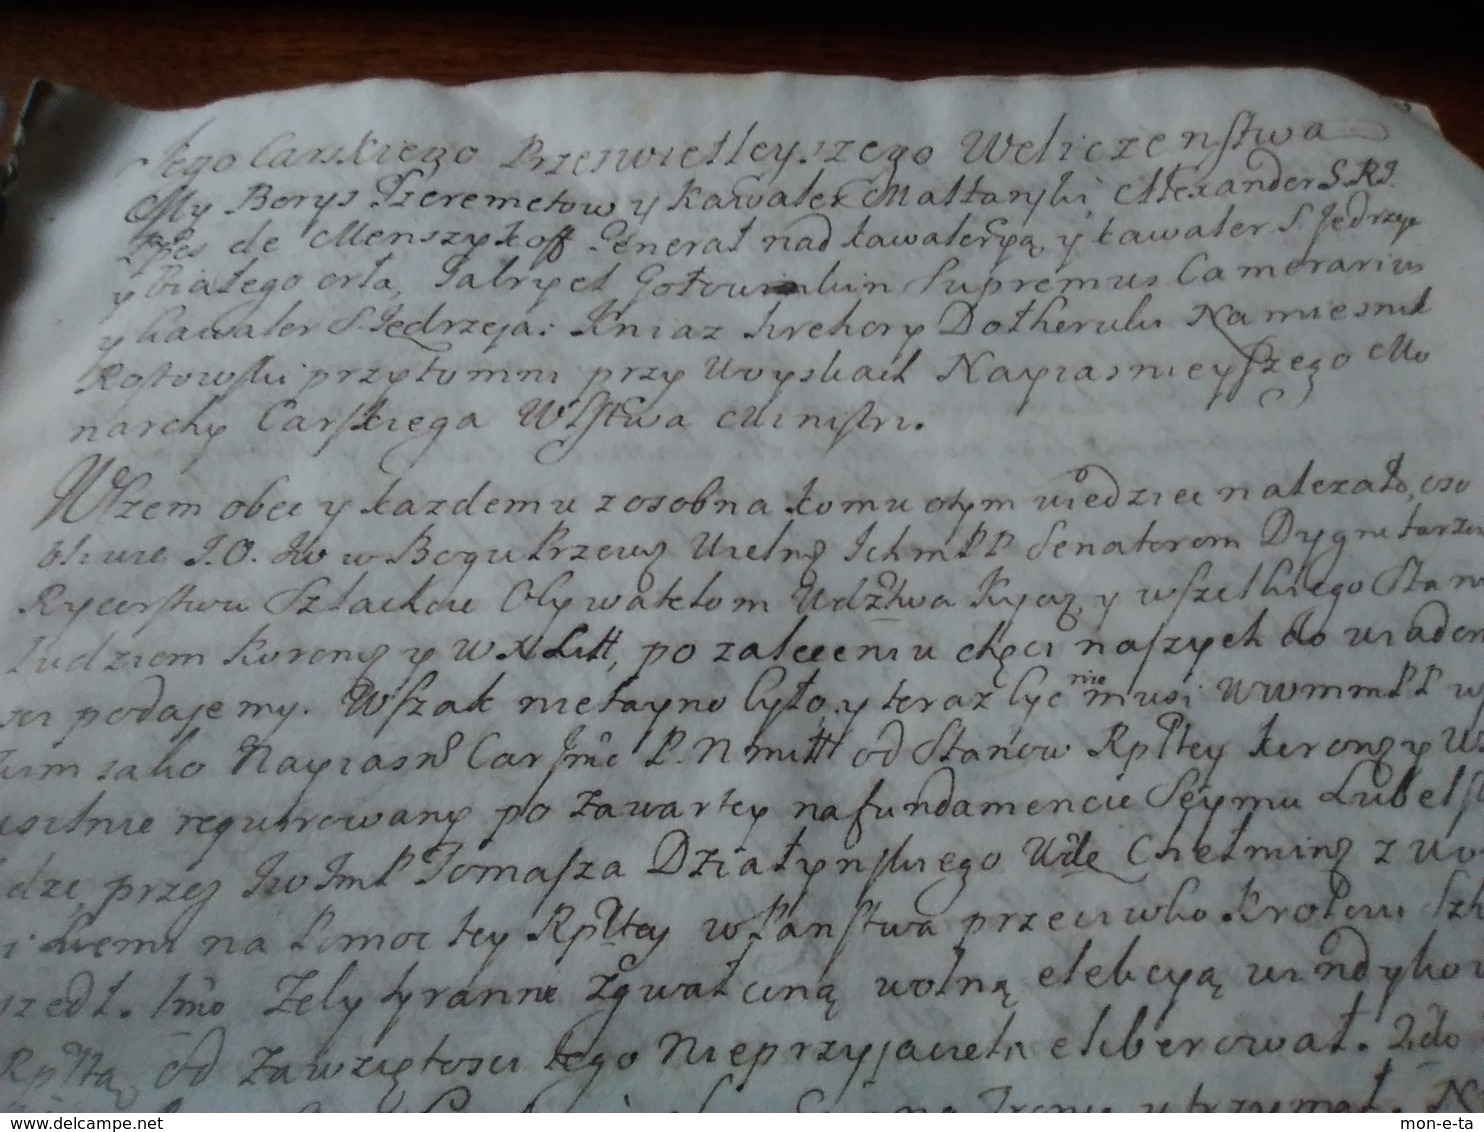 Jego Carskiego Przeswietleyszego Weliczenstwa
My Borys Szeremetow y Kawaler Maltanski, Alexander S.R.J.
de Menszykoff General nad kawaleryą, y kawaler S. Jędrzeja
y białego orła, Gabryel Gołowinkin Supremus Camerarius
y kawaler S. Jędrzeja: Kniaz hrehory Dołhoruki Namiesnik
Rostowski przytomni przy Woyskach Nayiasnieyszego Mo
narchy Carskiego WSstwa Ministri.
Wszem obec y kazdemu zosobna komu otym wiedziec nalezało, oso
bliwie J.O. Jw w Bogu Przew Ichm PP Senatorom Dygnitarzom
Rycerstwu Szlachcie Obywatelom Wdztwa y wszelkiego Stanu
ludziom Korony y WXLitt, po zaleceniu chęci naszych do wiadom
sci podajemy. Wszak nietayno było, y teraz byc nie musi WWmmPP w
kim iako Nayiasn Car Jmc P.N. miłł od Stanow Rpltey korony y W
usilnie requirowany po zawartey nafundamencie Seymu Lubels
dze, przez Jw JmP Tomasza Działynskiego Wde Chełmin z
na Pomoc tey Rpltey wPanstwa przeciwko Krolowi Sz
szedł. Imo Zeby tyrannie zgwałconą wolną elekcyą windykow
Rpltą od zawziętosci tego Nieprzyjaciela eliberował. 2do
mon-e-ta